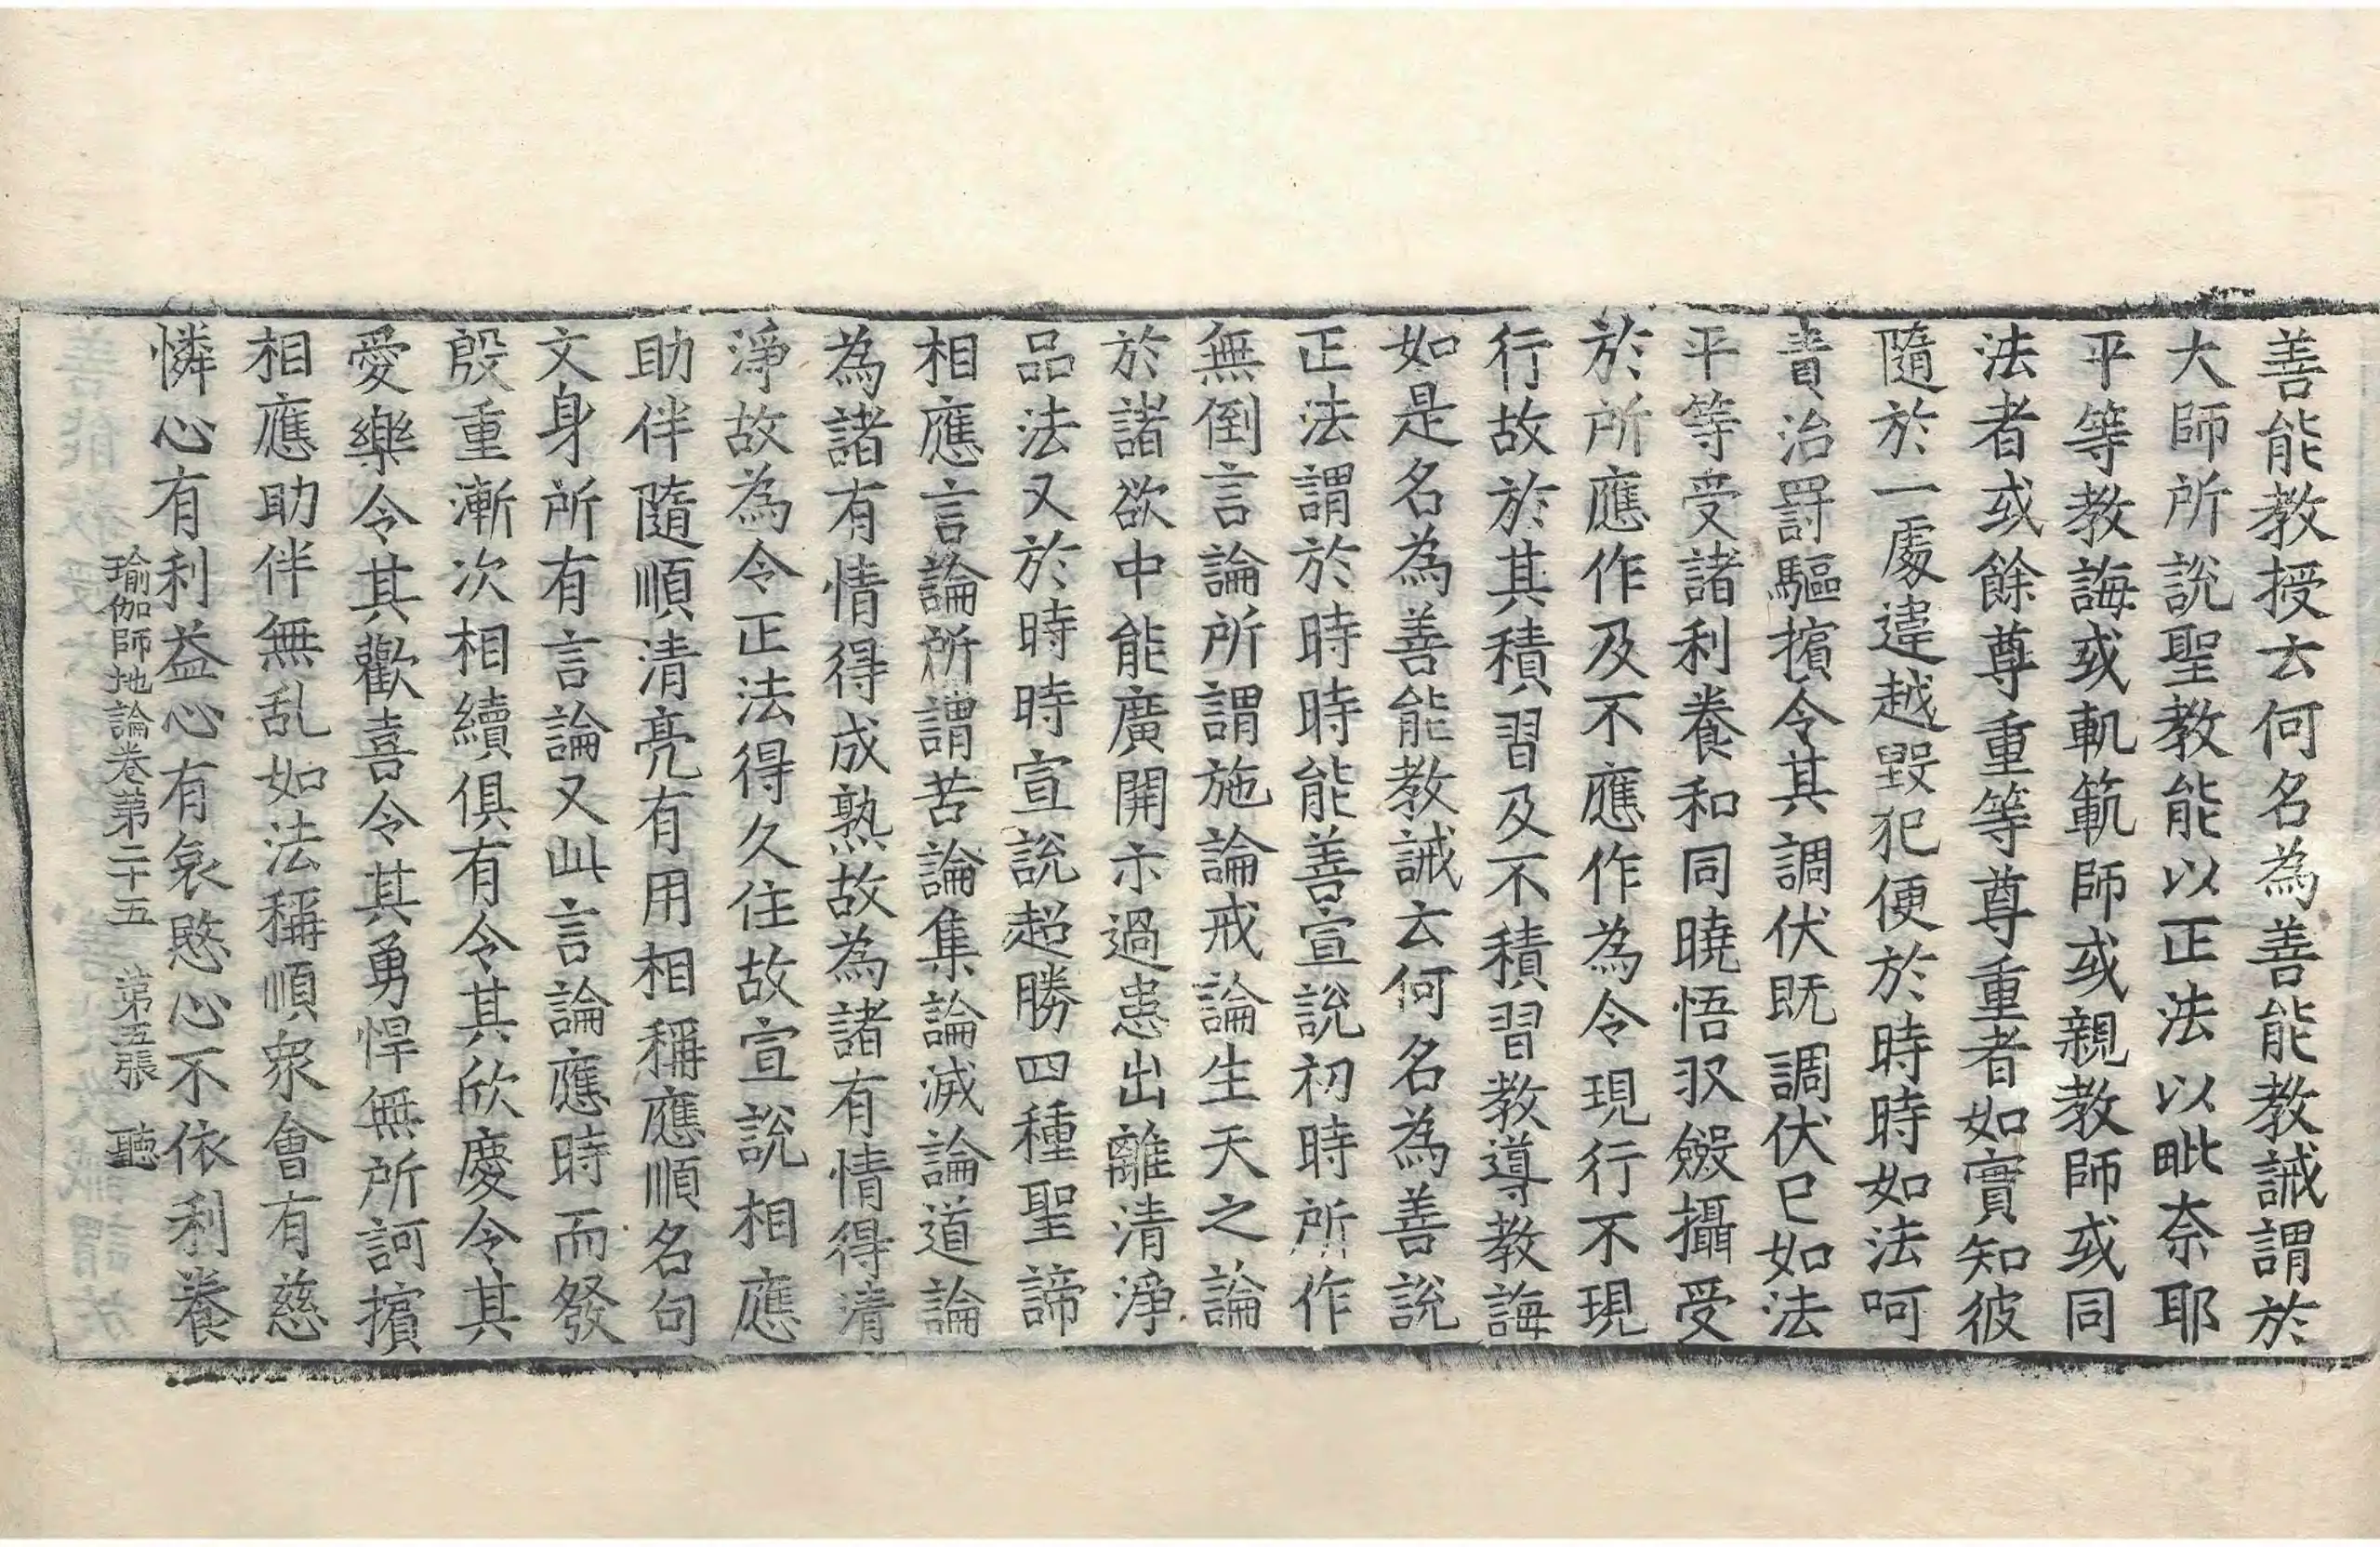 善能教授云何名為善能教誡謂於
大師所說聖教能以正法以毗奈耶
平等教誨或軌範師或親教師或同
法者或餘尊重等尊重者如實知彼
隨於一處違越毀犯便於時時如法呵
責治罸驅擯令其調伏既調伏已如法
平等受諸利養和同曉悟収斂攝受
於所應作及不應作為令現行不現
行故於其積習及不積習教導教誨
如是名為善能教誡云何名為善說
正法謂於時時能善宣說初時所作
無倒言論所謂施論戒論生天之論
於諸欲中能廣開示過患出離清淨
品法又於時時宣說超勝四種聖諦
相應言論所謂苦論集論滅論道論
為諸有情得成熟故為諸有情得清
淨故為令正法得久住故宣說相應
助伴隨順清亮有用相稱應順名句
文身所有言論又此言論應時而發
殷重漸次相續俱有令其欣慶令其
愛樂令其歡喜令其勇悍無所訶擯
相應助伴無乱如法稱順衆會有慈
憐心有利益心有哀愍心不依利養
瑜伽師地論卷第二十五 第五張 聽